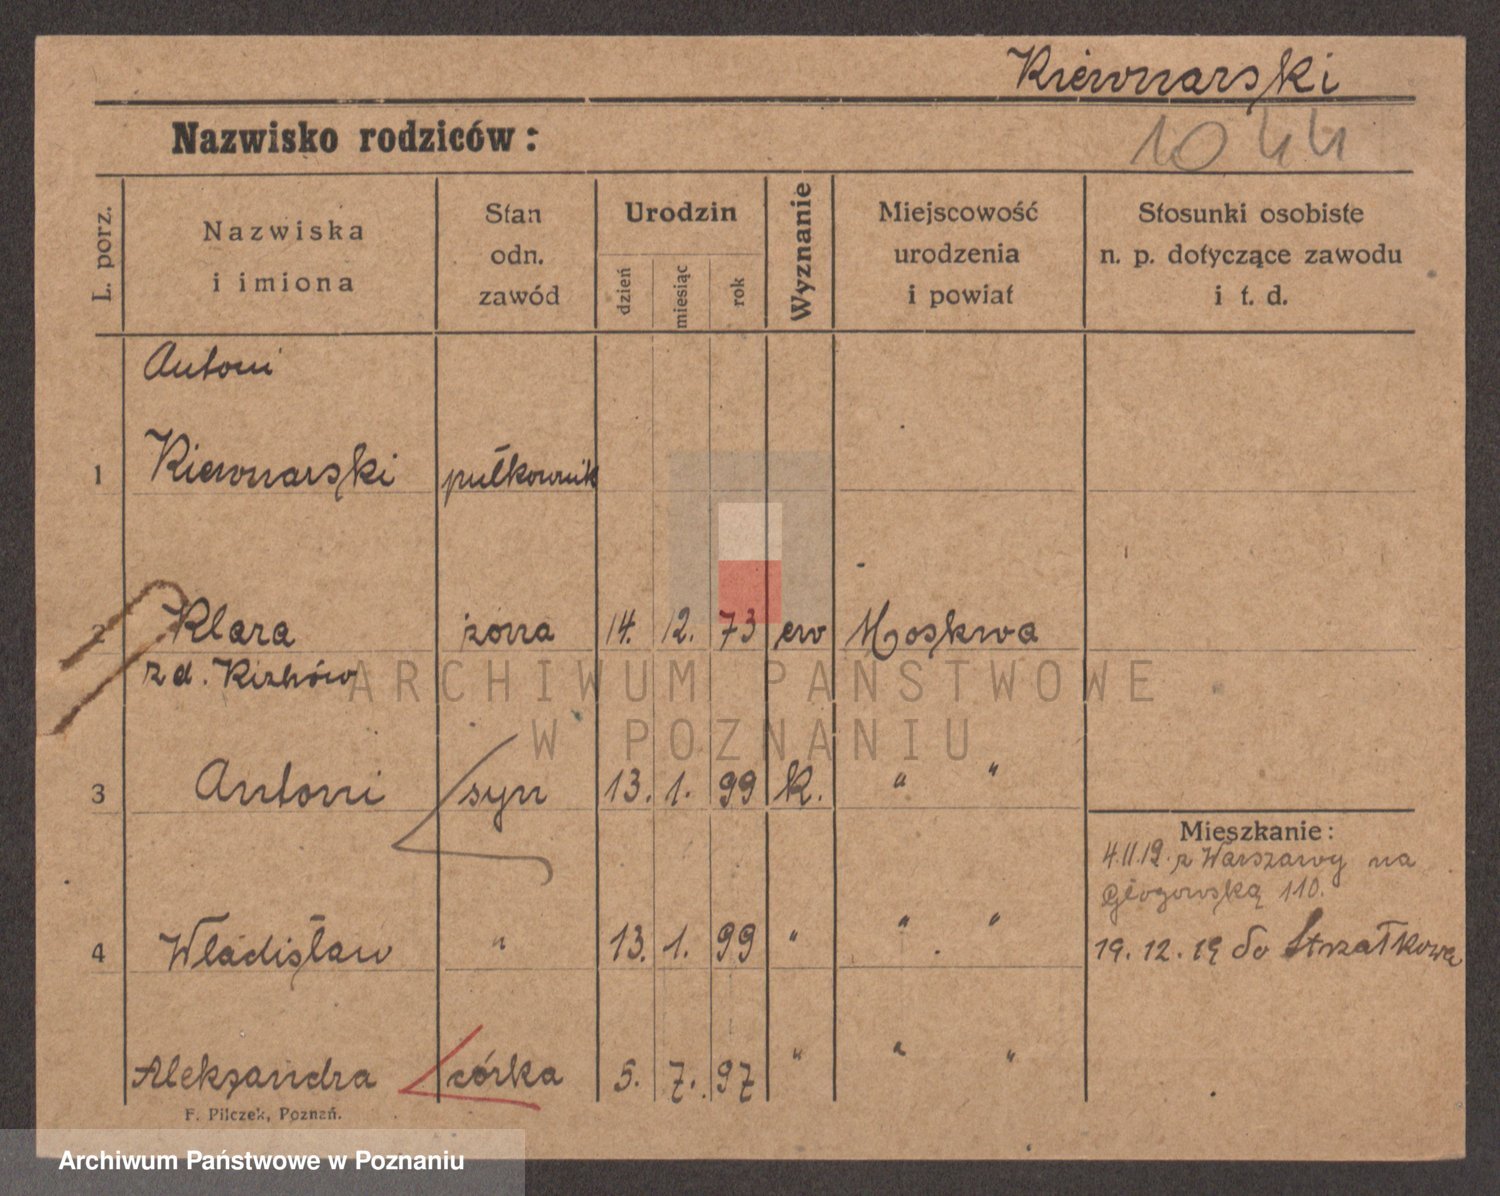 Kiewnarski
Nazwisko rodziców:
1044
L. porz.
Nazwiska
i imiona
Stan
odn.
zawód
Urodzin
dzień
miesiąc
rok
Wyznanie
Miejscowość
urodzenia
i powiat
Stosunki osobiste
n. p. dotyczące zawodu
i t. d.
Antoni
1 Kiewnarski pułkownik
2 Klara żona 14. 12. 73 ew Moskwa
z d.
ARCHIWUM PAŃSTWOWE
W POZNANIU
3 Antoni syn 13. 1. 99 k. " "
Mieszkanie:
4.11.19. z Warszawy na
Głogowską 110.
4 Władisław " 13. 1. 99 " " "
19. 12. 19 do Strzałkowa
Aleksandra córka 5. 7. 97 " " "
F. Pilczek, Poznań.
Archiwum Państwowe w Poznaniu